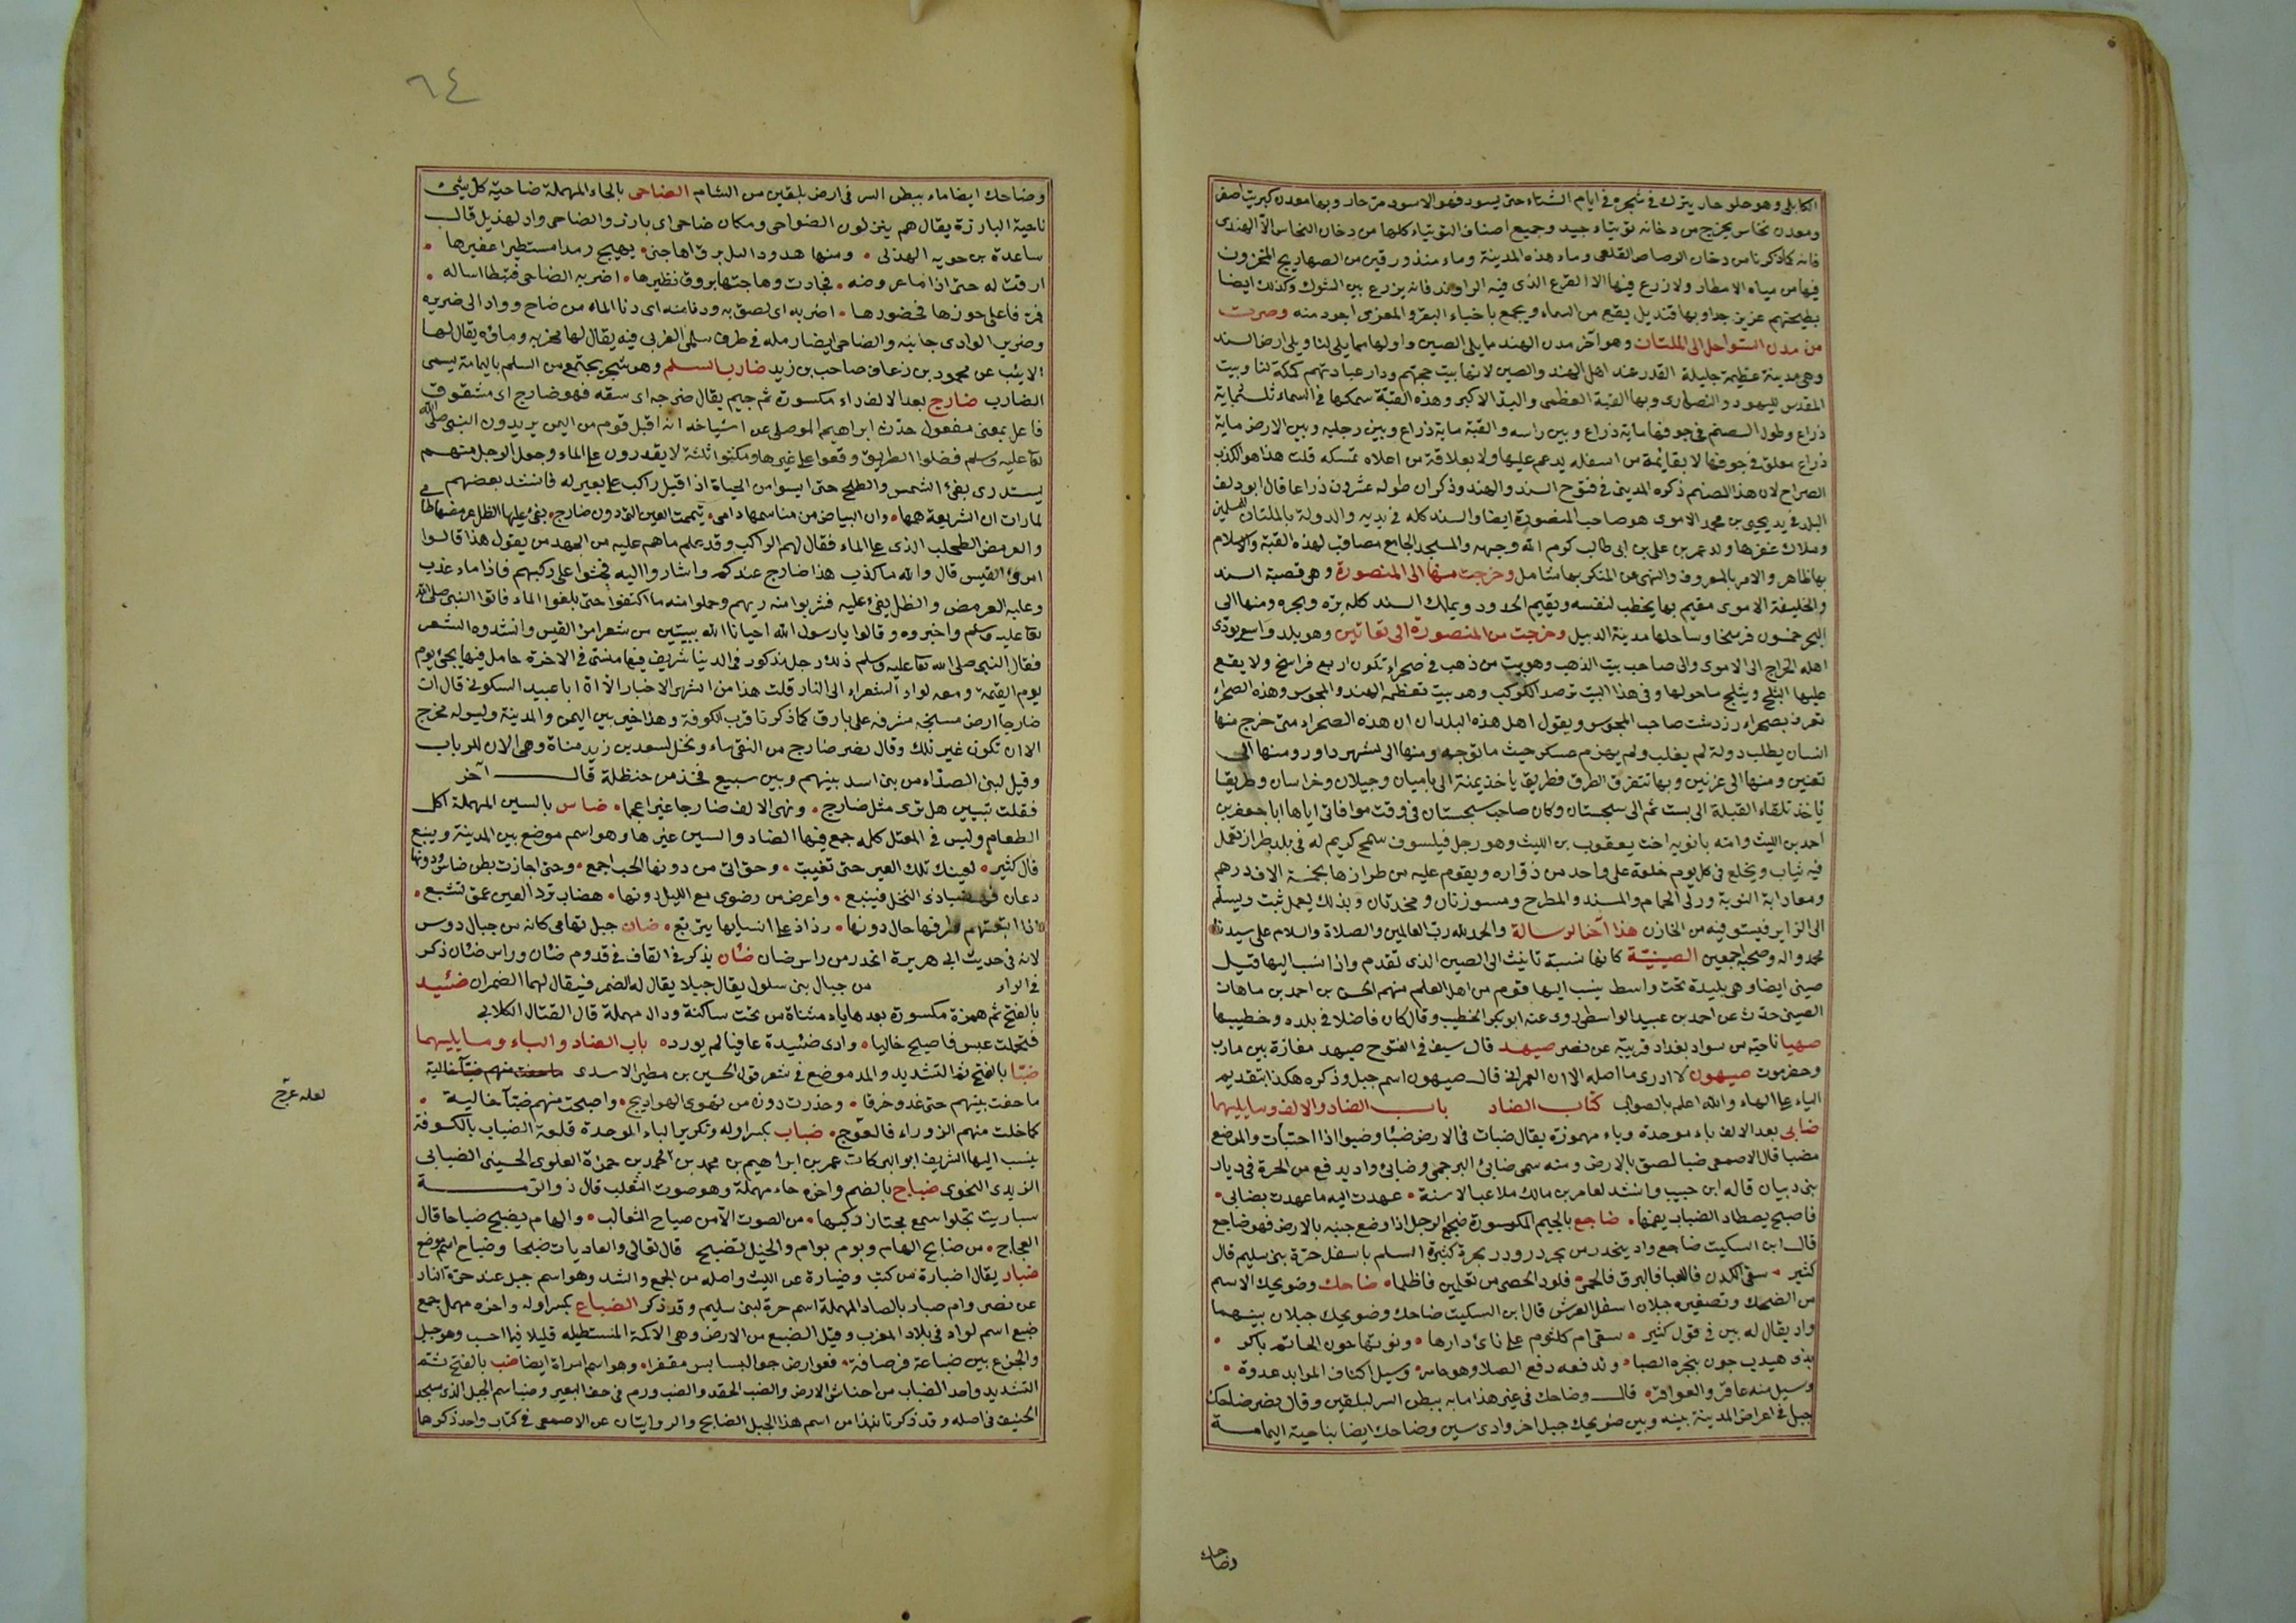 الكابلى وهو حلو حار يترك فى شجره فى ايام الشتاء حتى يسود فهو الاسود مرّ حار وبها معدن كبريت اصفر
ومعدن نحاس يخرج من دخانه توتياء جيد وجميع اصناف التوتياء كلها من دخان النحاس الا الهندى
فانه كما ذكرنا من دخان الرصاص القلعى وماء هذه المدينة وماء مندورقين من الصهاريج المخزون
فيها من مياه الامطار ولا زرع فيها الا القرع الذى فيه الراوند فانه يزرع بين الشوك وكذلك ايضا
بطيخهم عزيز جدا وبها قنبيل يقع من السماء ويجمع باخثاء البقر والمعزى اجود منه وصرت
من مدن السواحل الى الملتان وهو آخر مدن الهند مما يلى الصين واولها مما يلى لنا ويلى ارض السند
وهى مدينة عظيمة جليلة القدر عند اهل الهند والصين لانها بيت حجتهم ودار عبادتهم كمكة لنا وبيت
المقدس لليهود والنصارى وبها القبة العظمى والبد الاكبر وهذه القبة سمكها فى السماء ثلثماية
ذراع وطول الصنم فى جوفها ماية ذراع وبين راسه والقبة ماية ذراع وبين رجليه وبين الارض ماية
ذراع معلق فى جوفها لا بقايمة من اسفله يدعم عليها ولا بعلاقة من اعلاه تمسكه قلت هذا هو الكذب
الصراح لان هذا الصنم ذكره المدينى فى فتوح السند والهند وذكر ان طوله عشرون ذراعا قال ابو دلف
البلد فى يد يحيى بن محمد الاموى هو صاحب المنصورة ايضا والسند كله فى يديه والدولة بالملتان للمسلمين
وملاك عقرها ولد عمر بن على بن ابى طالب كرم الله وجهه والمسجد الجامع مصاقب لهذه القبة والاسلام
بها ظاهر والامر بالمعروف والنهى عن المنكر بها شامل وخرجت منها الى المنصورة وهى قصبة السند
والخليفة الاموى مقيم بها يخطب لنفسه ويقيم الحدود ويملك السند كله بره وبحره ومنها الى
البحر خمسون فرسخا وساحلها مدينة الديبل وخرجت من المنصورة الى بغانين وهو بلد واسع يؤدى
اهله الخراج الى الاموى والى صاحب بيت الذهب وهو بيت من ذهب فى صحراء تكون اربع فراسخ ولا يقع
عليها الثلج ويثلج ما حولها وفى هذا البيت ترصد الكوكب وهو بيت تعظمه الهند والمجوس وهذه الصحراء
تعرف بصحراء زردشت صاحب المجوس ويقول اهل هذه البلدان ان هذه الصحراء متى خرج منها
انسان يطلب دولة لم يغلب ولم يهزم عسكر حيث ما توجه ومنها الى شهر داور ومنها الى
بغنين ومنها الى غزنين وبها تتفرق الطرق فطريق ياخذ يمنة الى باميان وجيلان وخراسان وطريقا
ياخذ تلقاء القبلة الى بست ثم الى سجستان وكان صاحب سجستان فى وقت موافاتى اياها ابا جعفر بن
احمد بن الليث وامه بانويه اخت يعقوب بن الليث وهو رجل فيلسوف سمح كريم له فى بلد طراز تعمل
فيه ثياب ويخلع فى كل يوم خلعة على واحد من زواره ويقوم عليه من طرازها بخمسة الاف درهم
ومعها دابة النوبة وزلى الحمام والمسند والمطرح ومسورتان ومخدتان وبذلك يعمل ثبت ويسلم
الى الزاير فيستوفيه من الخازن هذا آخر الرسالة والحمد لله رب العالمين والصلاة والسلام على سيدنا
محمد واله وصحبه اجمعين الصينيّة كانها نسبة تانيث الى الصين الذى تقدم واذا نسب اليها قيل
صينى ايضا وهى بليدة تحت واسط ينسب اليها قوم من اهل العلم منهم الحسن بن احمد بن ماهان
الصينى حدث عن احمد بن عبيد الواسطى روى عنه ابو بكر الخطيب وقال كان فاضلا فى بلده وخطيبها
صهيا ناحية من سواد بغداد قريبة عن نصر صيهد قال سيف فى الفتوح صيهد مفازة بين مارب
وحضرموت صيهون لا ادرى ما اصله الا ان العمرانى قال صيهون اسم جبل وذكره هكذا بتقديم
الياء على الهاء والله اعلم بالصواب كتاب الضاد باب الضاد والالف وما يليهما
ضابى بعد الالف باء موحدة وياء مهموزة يقال ضبات فى الارض ضبئا وضبوا اذا اختبات والموضع
مضبا قال الاصمعى ضبا لصق بالارض ومنه سمى ضابئ البرجمى وضابئ واد يدفع من الحرة فى ديار
بنى دبيان قاله ابن حبيب وانشد لعامر بن مالك ملاعب الاسنة • عهدت اليه ما عهدت بضابى •
فاصبح يصطاد الضباب نعيمها. ضاجع بالجيم المكسورة ضجع الرجل اذا وضع جنبه بالارض فهو ضاجع
قال ابن السكيت ضاجع واد ينحدر من بحرة درّ ودر بحرة كثيرة السلم باسفل حرة بنى سليم قال
كثير • سقى الكدر فاللعبا فالبرق فالحمى • فلود الحصى من تغلمين فاظلما • ضاحك وضويحك الاسم
من الضحك وتصغيره جبلان اسفل الفرش قال ابن السكيت ضاحك وضويحك جبلان بينهما
واد يقال له بين فى قول كثير • سقى ام كلثوم على نائ دارها • ونسوتها جون الحيا ثم باكر •
بذى هيدب جون تنجزه الصبا • وتدفعه دفع الطلا وهو حاسر • وسيل اكناف المرابد غدوة •
وسيل منه ضاحك والعواقر • قال وضاحك فى غير هذا ماء ببطن السر لبلقين وقال نصر ضاحك
جبل فى اعراض المدينة بينه وبين ضويحك جبل اخر وادى يين وضاحك ايضا بناحية اليمامة
وضاحك
٦٤
وضاحك ايضا ماء ببطن السر فى ارض بلقين من الشام الضاحى بالحاء المهملة ضاحية كل شئ
ناحية البارزة يقال هم ينزلون الضواحى ومكان ضاحى اى بارز والضاحى واد لهذيل قال
ساعدة بن جوية الهذلى • ومنها هدو الليل برق فهاجنى • يهيج رمدا مستطيرا عفيرها •
ارقت له حتى اذا ما عروضه • تحادت وهاجتها بروق نظيرها • اضر به الضاحى فنبطا اساله •
فمر فاعلى حوزها فخصورها • اضر به اى لصق به ودنا منه اى دنا الماء من ضاح وواد الى ضريره
وضرير الوادى جانبه والضاحى ايضا رمله فى طرف سلمى الغربى فيه يقال لها محزبه وماؤه يقال لها
الاثيب عن محمود بن زعاق صاحب بن زيد ضارب السلم وهو شجر يجتمع من السلم باليمامة يسمى
الضارب ضارج بعد الالف راء مكسورة ثم جيم يقال ضرجه اى شقه فهو ضارج اى مشقوق
فاعل بمعنى مفعول حدث ابراهيم الموصلى عن اشياخه انه اقبل قوم من اليمن يريدون النبى صلى الله
تعا عليه وسلم فضلوا الطريق وقعوا على غيرها ومكثوا ثلثة لا يقدرون على الماء وجعل الرجل منهم
يستذرى بفئ الشمس والطلح حتى ايسوا من الحياة اذ اقبل راكب على بعير له فانشد بعضهم
لما رات ان الشريعة همها • وان البياض من فرائصها دامى • تيممت العين التى دون ضارج • يفئ عليها الظل عرمضها طامى
والعرمض الطحلب الذى على الماء فقال لهم الراكب وقد علم ما هم عليه من الجهد من يقول هذا قالوا
امرؤ القيس قال والله ما كذب هذا ضارج عندكم واشار اليه فجثوا على ركبهم فاذا ماء عذب
وعليه العرمض والظل يفئ عليه فشربوا منه ريهم وحملوا منه ما اكتفوا حتى بلغوا الماء فاتوا النبى صلى الله
تعا عليه وسلم واخبروه وقالوا يا رسول الله احيانا الله ببيتين من شعر امرئ القيس وانشدوه الشعر
فقال النبى صلى الله تعا عليه وسلم ذلك رجل مذكور فى الدنيا شريف فيها منسى فى الاخرة خامل فيها يجئ يوم
يوم القيمة ومعه لواء الشعراء الى النار قلت هذا من اشهر الاخبار الا ان ابا عبيد السكونى قال ان
ضارجا ارض سبخة مشرفة على بارق كما ذكرنا قرب الكوفة وهذا خبر بين اليمن والمدينة وليس له مخرج
الا ان تكون غير تلك وقال نصر ضارج من النقى ماء ونخل لسعد بن زيد مناة وهى الان للرباب
وقيل لبنى الصيداء من بنى اسد بينهم وبين سبيع فخذ من حنظلة قال آخر
فقلت تبين هل ترى مثل ضارج • ونهى الالف ضارجا غير اعجما • ضاس بالسين المهملة اكل
الطعام وليس فى المعتل كلمه جمع فيها الضاد والسين غيرها وهو اسم موضع بين المدينة وينبع
قال كثير • لعينك تلك العير حتى تغيبت • وحتى اتى من دونها الحب اجمع • وحتى اجازت بطن ضاس ودونها
دعان فهضبا ذى النخل فينبع • واعرض من رضوى مع الليل دونها • هضاب ترد العين عمن تشيع •
اذا اتبعتهم طرفها حال دونها • رذاذ على انسانها يتريع • ضان جبل تهامى كانه من جبال دوس
لانه فى حديث ابى هريرة انحدر من راس ضان ضئان يذكر فى القاف فى قدوم ضئان وراس ضئان ذكر
فى الراء من جبال بنى سلول يقال جبلا يقال له الضمر فيقال لهما الضمران ضئيد
بالفتح ثم همزة مكسورة بعدها ياء مثناة من تحت ساكنة ودال مهملة قال القتال الكلابى
فتحملت عبس فاصبح خاليا • وادى ضئيدة عافيا لم يورد • باب الضاد والباء وما يليهما
ضبّا بالفتح ثم التشديد والمد موضع فى شعر قول الحسين بن مطير الاسدى
ما خفت بينهم حتى غدو خرقا • وخدرت دون من تهوى الهواديج • واصبحت منهم ضبآ خالية •
لعله عوّج
كما خلت منهم الزوراء فالعوج • ضباب بكسر اوله وتكرير الباء الموحدة قلعة الضباب بالكوفة
ينسب اليها الشريف ابو البركات عمر بن ابراهيم بن محمد بن محمد بن حمزة العلوى الحسينى الضبابى
الزيدى النحوى ضباح بالضم واخره حاء مهملة وهو صوت الثعلب قال ذو الرمة
سباريت تجلو سمع مجتاز ركبها • من الصوت الا من ضباح الثعالب • والهام يضبح ضباحا قال
العجاج • من ضابح الهام وبوم بوام والخيل تضبح قال تعالى والعاديات ضبحا وضباح اسم موضع
ضبار يقال اضبارة من كتب وضبارة عن الليث واصله من الجمع والشد وهو اسم جبل عند حرة النار
عن نصر وام صبار بالصاد المهملة اسم حرة لبنى سليم وقد ذكر الضباع بكسر اوله واخره مهمل جمع
ضبع اسم لواد فى بلاد العرب وقيل الضبع من الارض وهى الاكمة المستطيله قليلا فيما احسب وهو جبل
والجزع بين ضباعة فرصافة • فعوارض جو البسابس مقفرا • وهو اسم امراة ايضا ضب بالفتح ثم
التشديد واحد الضباب من احناش الارض والضب الحقد والضب ورم فى خف البعير وضب اسم الجبل الذى مسجد
الخيف فى اصله وقد ذكرنا نبذا من اسم هذا الجبل الضابح والروايتان عن الاصمعى فى كتاب واحد ذكرها